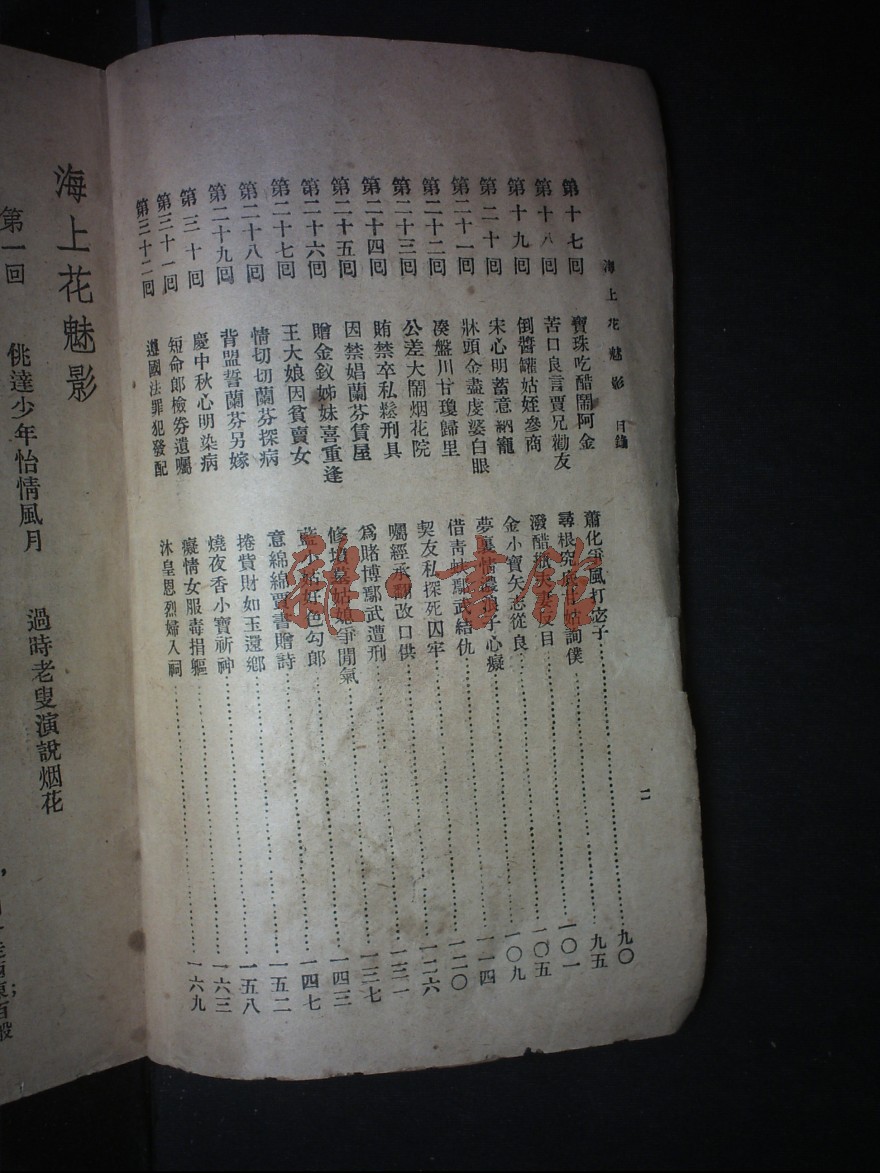 海上花魅影 目錄
第十七回 寶珠吃醋鬧阿金 蕭化爭風打宓子 九〇
第十八回 苦口良言賈兄勸友 尋根究 姑詢僕 九五
第十九回 倒醬罐姑姪參商 潑醋 目 一〇一
第二十回 宋心明蓄意納寵 金小寶矢志從良 一〇五
第二十一回 牀頭金盡虔婆白眼 夢裏情濃 子心癡 一〇九
第二十二回 湊盤川甘瓊歸里 借靑蚨鄢武結仇 一一四
第二十三回 公差大鬧烟花院 契友私探死囚牢 一二〇
第二十四回 賄禁卒私鬆刑具 囑經承翻改口供 一二六
第二十五回 因禁娼蘭芬賃屋 爲賭博鄢武遭刑 一三一
第二十六回 贈金釵姊妹喜重逢 修墳墓姑媳爭閒氣 一三七
第二十七回 王大娘因貧賣女 藍小姑好色勾郎 一四三
第二十八回 情切切蘭芬探病 意綿綿賈書贈詩 一四七
第二十九回 背盟誓蘭芬另嫁 捲貲財如玉還鄉 一五二
第三十回 慶中秋心明染病 燒夜香小寶祈神 一五八
第三十一回 短命郎檢券遺囑 癡情女服毒捐軀 一六三
第三十二回 遵國法罪犯發配 沐皇恩烈婦入祠 一六九
二
雜·書館
海上花魅影
第一回 佻達少年怡情風月 過時老叟演說烟花